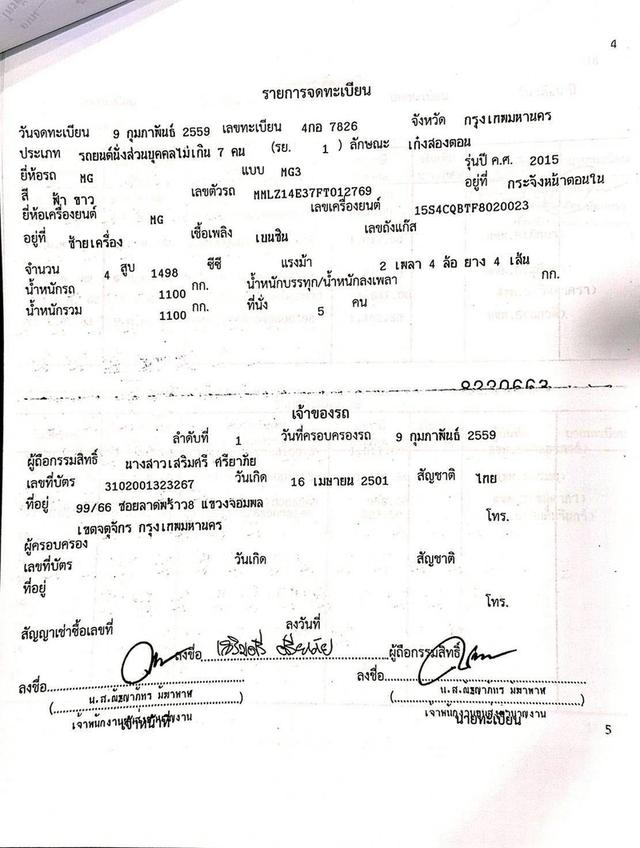 4
รายการจดทะเบียน
วันจดทะเบียน 9 กุมภาพันธ์ 2559 เลขทะเบียน 4กอ 7826 จังหวัด กรุงเทพมหานคร
ประเภท รถยนต์นั่งส่วนบุคคลไม่เกิน 7 คน (รย. 1 ) ลักษณะ เก๋งสองตอน
ยี่ห้อรถ MG แบบ MG3 รุ่นปี ค.ศ. 2015
สี ฟ้า ขาว เลขตัวรถ MMLZ14E37FT012769 อยู่ที่ กระจังหน้าตอนใน
ยี่ห้อเครื่องยนต์ MG เลขเครื่องยนต์ 15S4CQBTF8020023
อยู่ที่ ซ้ายเครื่อง เชื้อเพลิง เบนซิน เลขถังแก๊ส
จำนวน 4 สูบ 1498 ซีซี แรงม้า 2 เพลา 4 ล้อ ยาง 4 เส้น
น้ำหนักรถ 1100 กก. น้ำหนักบรรทุก/น้ำหนักลงเพลา กก.
น้ำหนักรวม 1100 กก. ที่นั่ง 5 คน
8220663
เจ้าของรถ
ลำดับที่ 1 วันที่ครอบครองรถ 9 กุมภาพันธ์ 2559
ผู้ถือกรรมสิทธิ์ นางสาวเสริมศรี ศรียาภัย
เลขที่บัตร 3102001323267 วันเกิด 16 เมษายน 2501 สัญชาติ ไทย
ที่อยู่ 99/66 ซอยลาดพร้าว8 แขวงจอมพล
เขตจตุจักร กรุงเทพมหานคร โทร.
ผู้ครอบครอง
เลขที่บัตร วันเกิด สัญชาติ
ที่อยู่
โทร.
สัญญาเช่าซื้อเลขที่ ลงวันที่
ลงชื่อ เสริมศรี ศรียาภัย ผู้ถือกรรมสิทธิ์
ลงชื่อ ลงชื่อ
เจ้าหน้าที่ นายทะเบียน
5